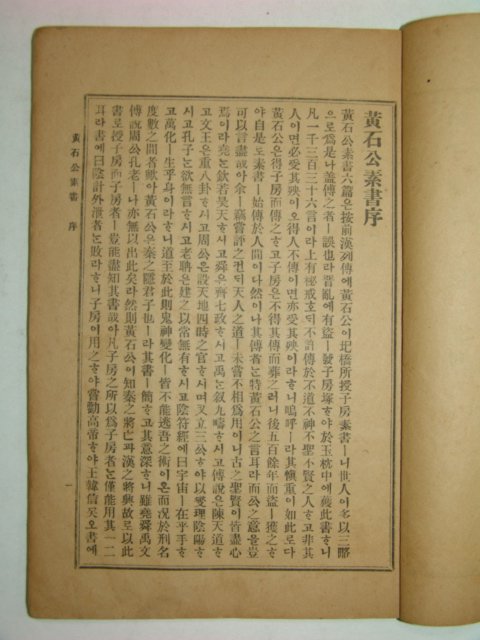 黃石公素書序
黃石公素書六篇은按前漢列傳에黃石公이圯橋所授子房素書ㅣ니世人이多以三略
으로爲是나盖傳之者ㅣ誤也라晋亂에有盜ㅣ發子房塚ᄒᆞ야於玉枕中에獲此書ᄒᆞ니
凡一千三百三十六言이라上有秘戒호ᄃᆡ不許傳於不道不神不聖不賢之人ᄒᆞ고非其
人이면必受其殃이오得人不傳이면亦受其殃이라ᄒᆞ니嗚呼ㅣ라其愼重이如此로다
黃石公은得子房而傳之ᄒᆞ고子房은不得其傳而葬之러니後五百餘年而盜ㅣ獲之ᄒᆞ
야自是로素書ㅣ始傳於人間이나然이나其傳者는特黃石公之言耳라而公之意을豈
可以言盡哉아余ㅣ竊嘗評之컨ᄃᆡ天人之道ㅣ未嘗不相爲用이니古之聖賢이皆盡心
焉이라堯는欽若昊天ᄒᆞ시고舜은齊七政ᄒᆞ시고禹는叙九疇ᄒᆞ시고傅說은陳天道ᄒᆞ시
고文王은重八卦ᄒᆞ시고周公은設天地四時之官ᄒᆞ시며又立三公ᄒᆞ야以爕理陰陽ᄒᆞ
시고孔子는欲無言ᄒᆞ시고老聃은建之以常無有ᄒᆞ시고陰符經에曰宇宙ㅣ在乎手ᄒᆞ
고萬化ㅣ生乎身이라ᄒᆞ니道至於此則鬼神變化ㅣ皆不能逃吾之術이온而况於刑名
度數之間者歟아黃石公은秦之隱君子也ㅣ라其書ㅣ簡ᄒᆞ고其意深ᄒᆞ니雖堯舜禹文
傅說周公孔老ㅣ나亦無以出此矣라然則黃石公이知秦之將亡과漢之將興故로以此
書로授子房而子房者ㅣ豈能盡知其書哉아凡子房之所以爲子房者는僅能用其一二
耳라書에曰陰計外泄者는敗라ᄒᆞ니子房이用之ᄒᆞ야嘗勸高帝ᄒᆞ야王韓信矣오書에
黃石公素書 序 一